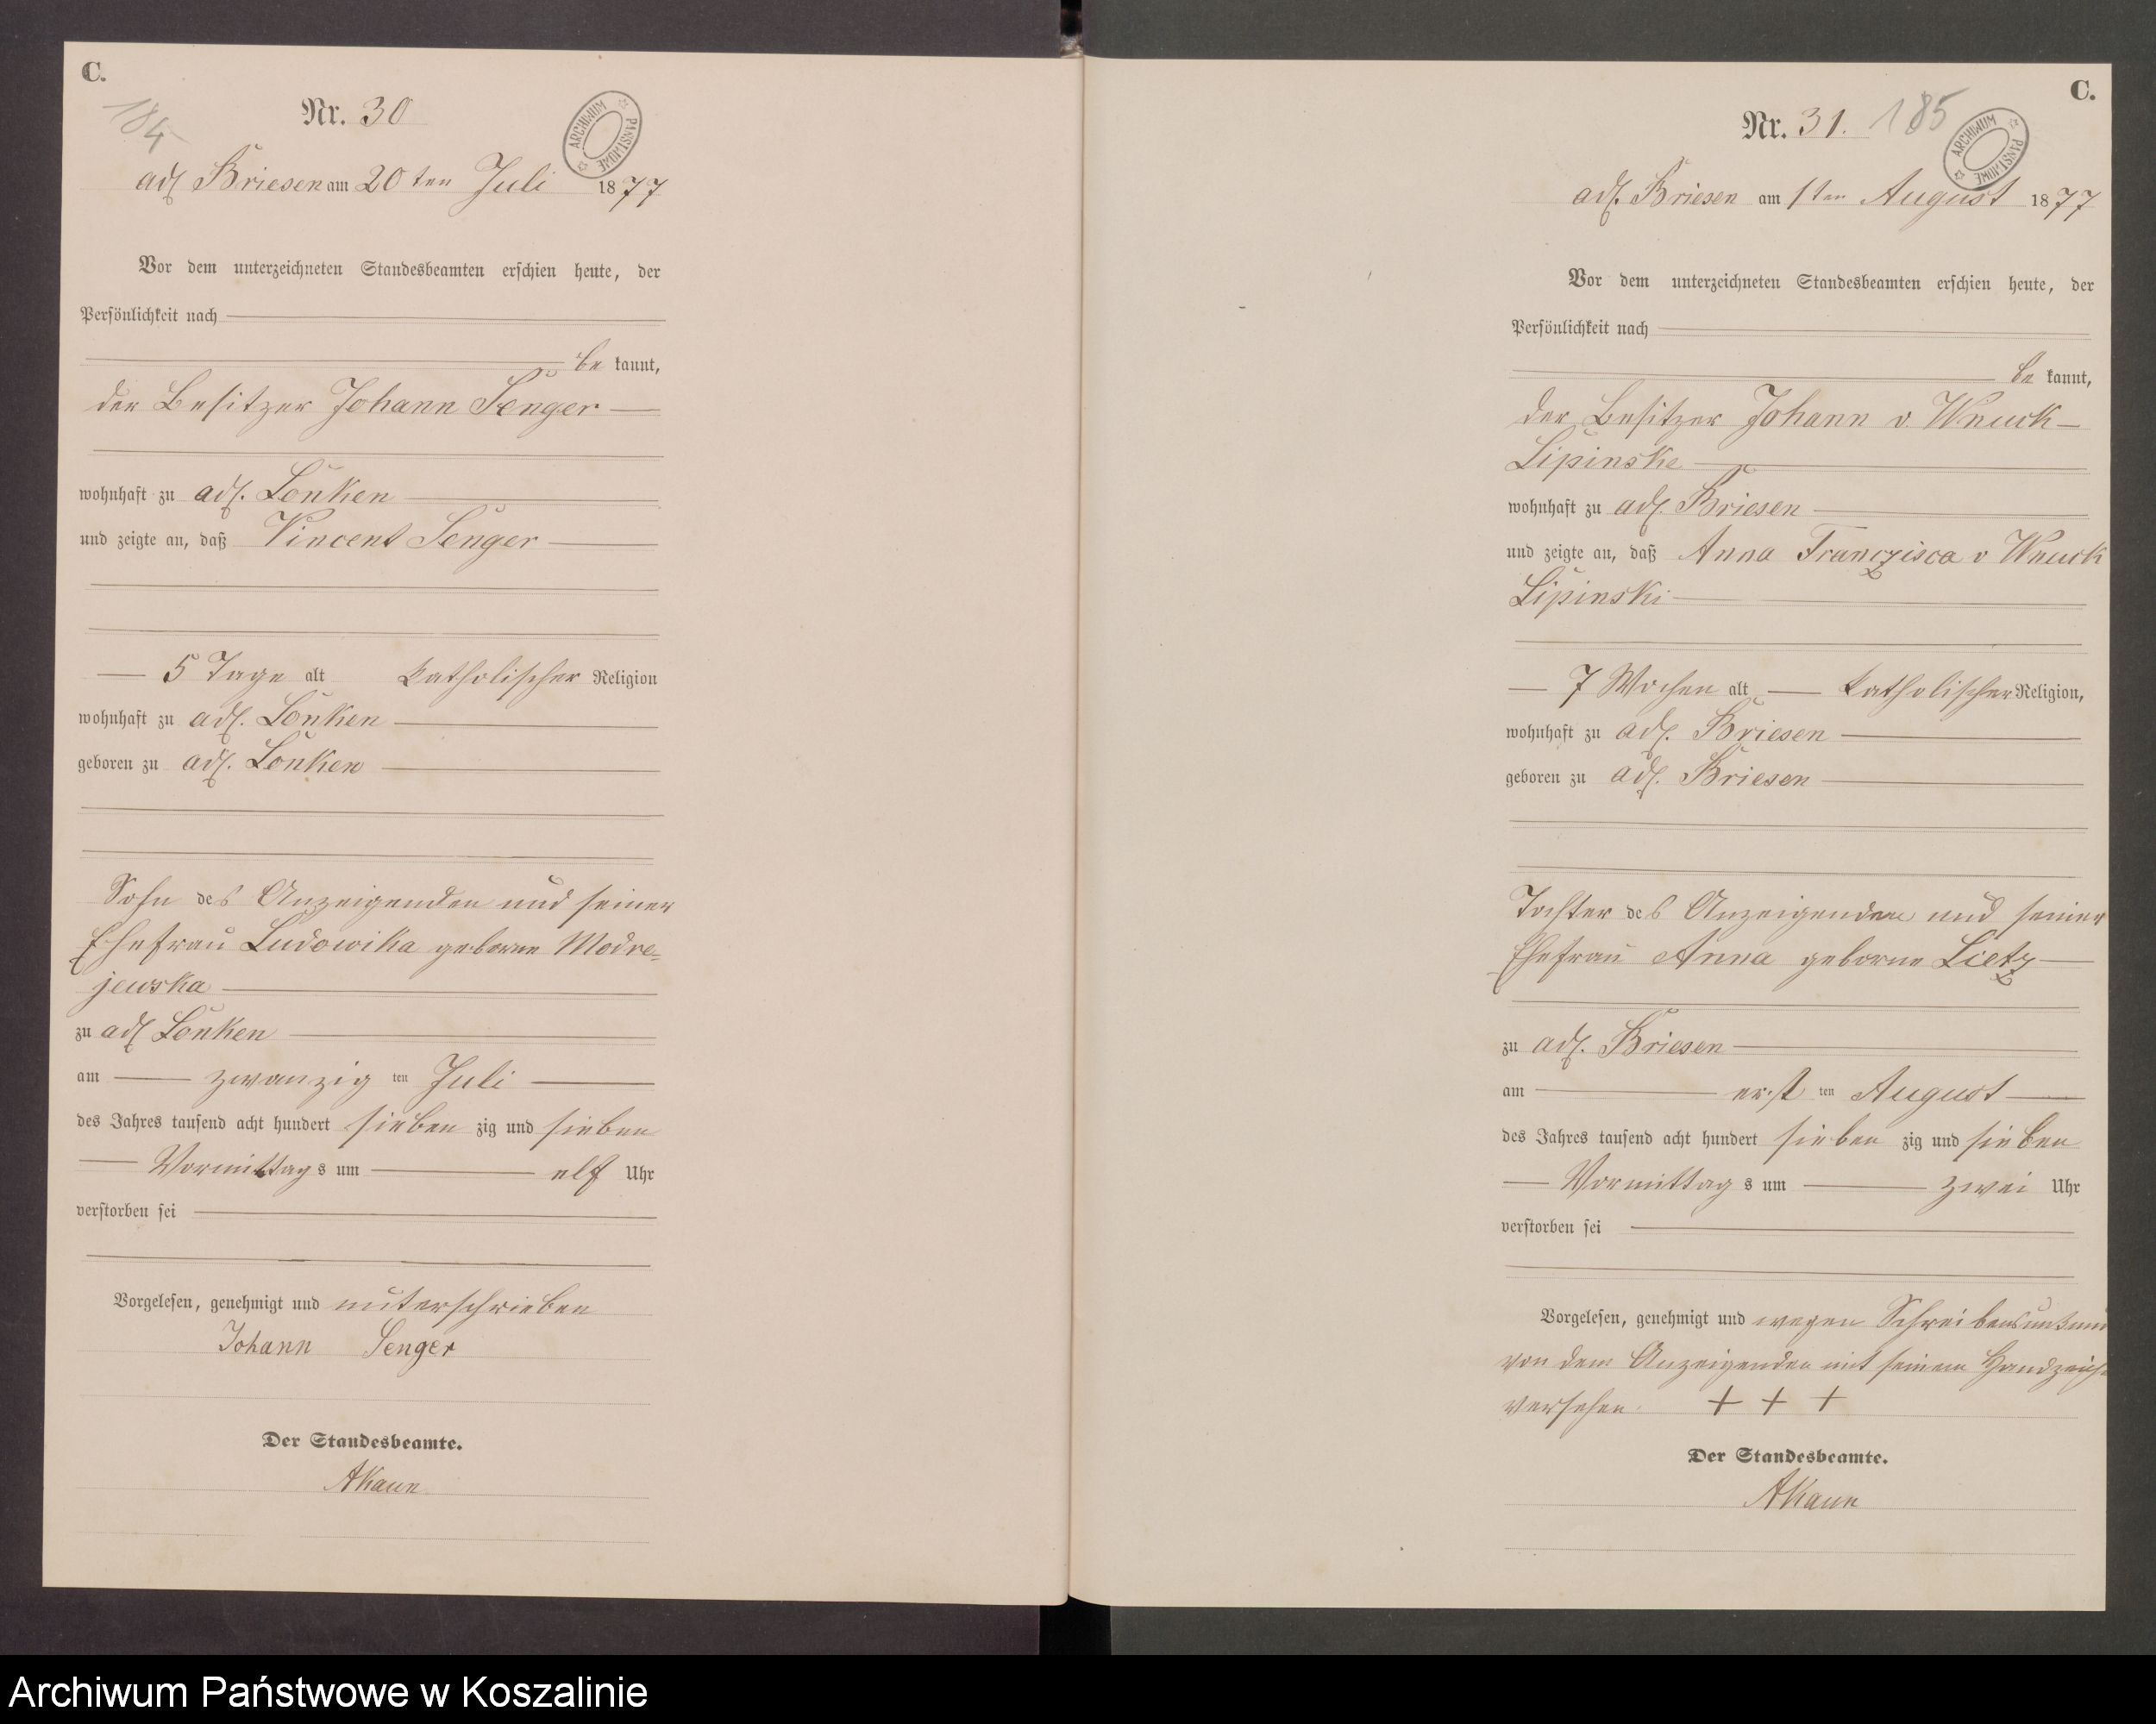 C.
184
Nr. 30
ARCHIWUM PAŃSTWOWE
adl Briesen am 20ten Juli 1877
Vor dem unterzeichneten Standesbeamten erschien heute, der
Persönlichkeit nach
be kannt,
der Besitzer Johann Senger
wohnhaft zu adl. Lonken
und zeigte an, daß Vincent Senger
5 Tage alt katholischer Religion
wohnhaft zu adl. Lonken
geboren zu adl. Lonken
Sohn des Anzeigenden und seiner
Ehefrau Ludowika geborne Modre=
jewska
zu adl Lonken
am zwanzig ten Juli
des Jahres tausend acht hundert sieben zig und sieben
Vormittag s um elf Uhr
verstorben sei
Vorgelesen, genehmigt und unterschrieben
Johann Senger
Der Standesbeamte.
AKaun
C.
Nr. 31. 185
ARCHIWUM PAŃSTWOWE
adl. Briesen am 1ten August 1877
Vor dem unterzeichneten Standesbeamten erschien heute, der
Persönlichkeit nach
be kannt,
der Besitzer Johann v. Wnuck-
Lipinske
wohnhaft zu adl. Briesen
und zeigte an, daß Anna Franczisca v Wnuck
Lipinski
7 Wochen alt katholischer Religion,
wohnhaft zu adl. Briesen
geboren zu adl. Briesen
Tochter des Anzeigenden und seiner
Ehefrau Anna geborne Lietz
zu adl. Briesen
am erst ten August
des Jahres tausend acht hundert sieben zig und sieben
Vormittag s um zwei Uhr
verstorben sei
Vorgelesen, genehmigt und wegen
von dem Anzeigenden mit seinem Handzeiche
versehen + + +
Der Standesbeamte.
AKaun
Archiwum Państwowe w Koszalinie